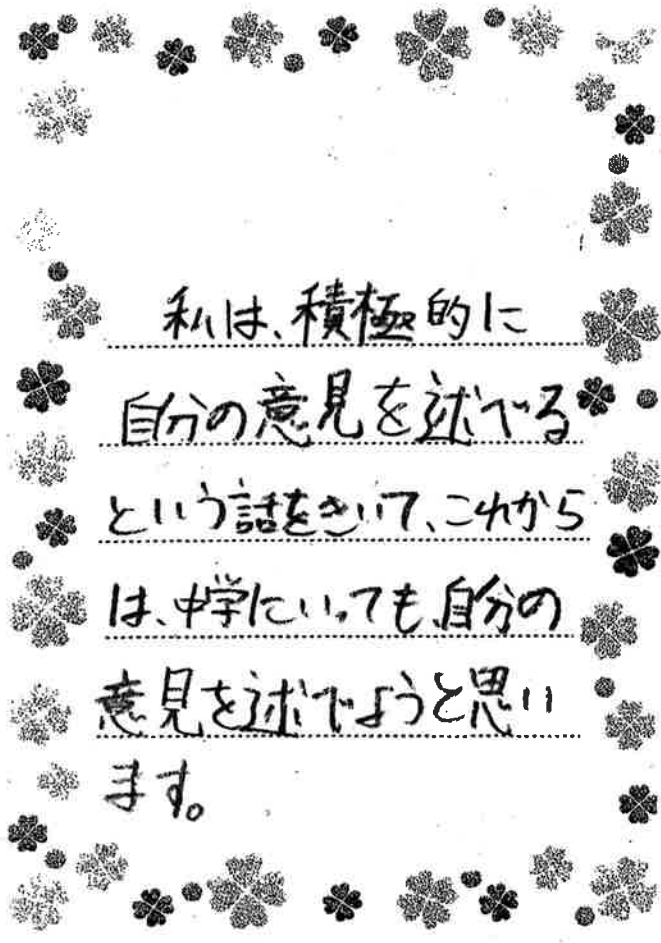 私は、積極的に
自分の意見を述べる
という話をきいて、これから
は、中学にいっても、自分の
意見を述べようと思い
ます。